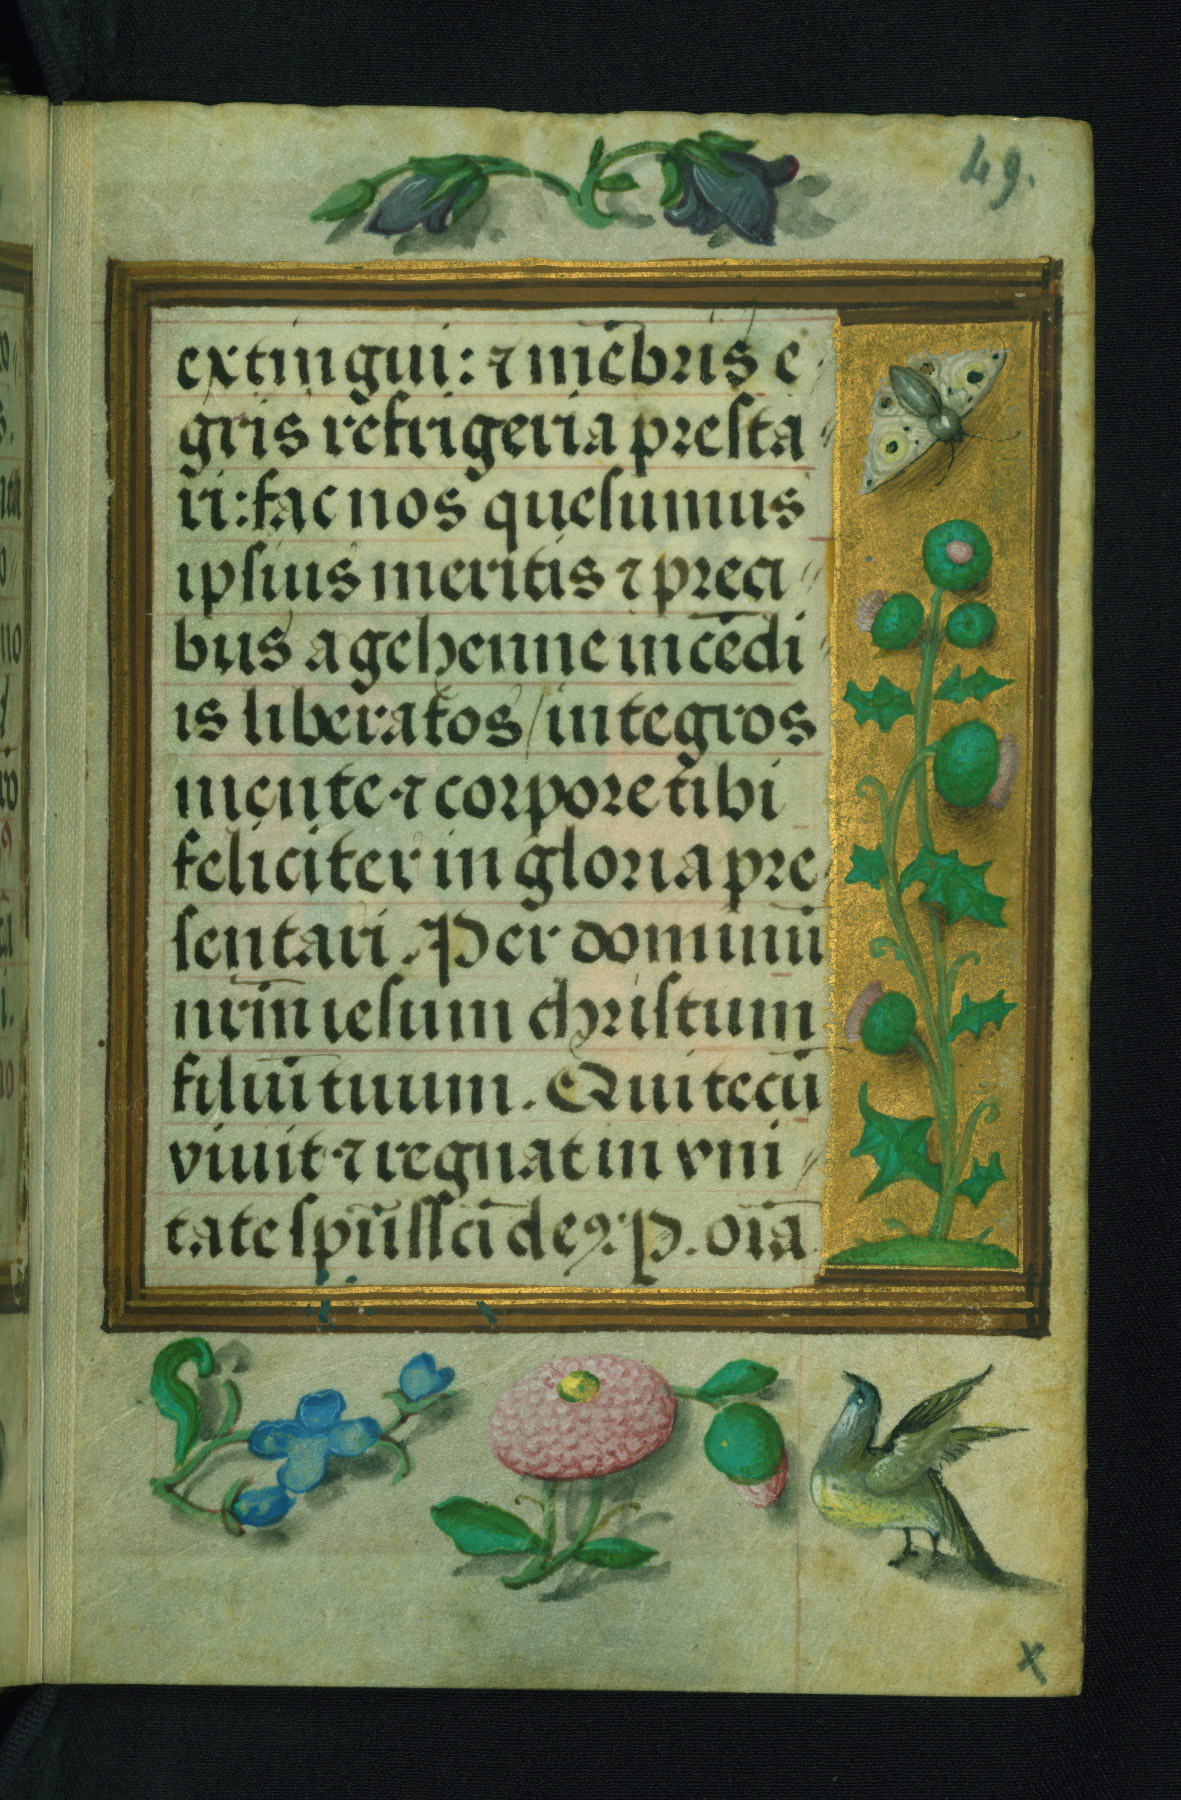 49.
extingui: ⁊ mēbris e
gris refrigeria presta
ri: fac nos quesumus
ipsius meritis ⁊ preci
bus a gehenne incēdi
is liberatos / integros
mente ⁊ corpore tibi
feliciter in gloria pre
sentari. Per dominū
nrm̄ iesum christum
filiū tuum. Qui tecū
viuit ⁊ regnat in vni
tate spūs scī deꝰ. P. oīa
x